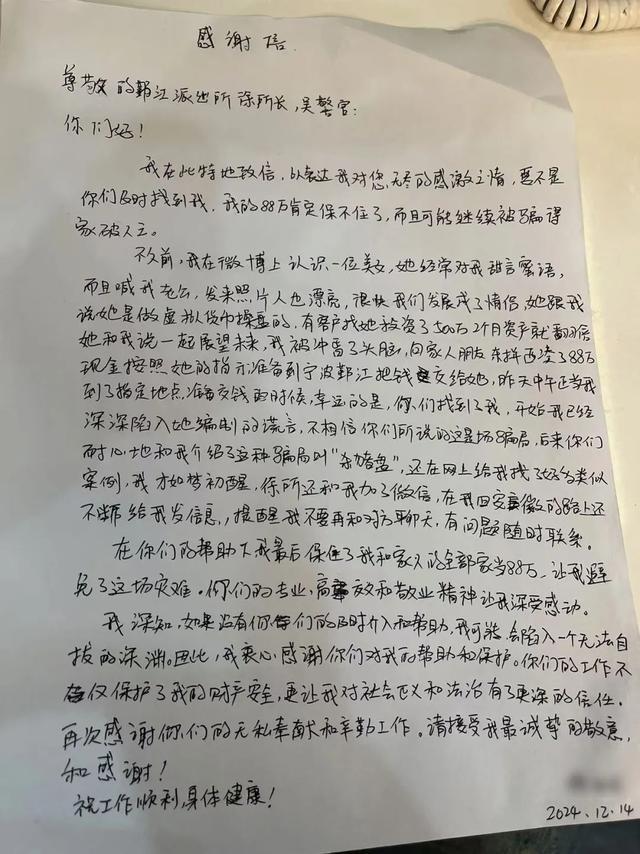 感谢信
尊敬的鄞江派出所徐所长,吴警官:
你们好!
我在此特地致信,以表达我对您无尽的感激之情,要不是
你们及时找到我,我的88万肯定保不住了,而且可能继续被骗得
家破人亡。
不久前,我在微博上认识一位美女,她经常对我甜言蜜语,
而且喊我老公,发来照片人也漂亮,很快我们发展成了情侣,她跟我
说她是做虚拟货币操盘的,有客户找她投资了500万2个月资产就翻倍
她和我说一起展望未来,我被冲昏了头脑,向家人朋友东拼西凑了88万
现金按照她的指示准备到宁波鄞江把钱交给她,昨天中午正当我
到了指定地点,准备交钱的时候,幸运的是,你们找到了我,开始我已经
深深陷入她编制的谎言,不相信你们所说的这是场骗局,后来你们
耐心地和我介绍了这种骗局叫“杀猪盘”,还在网上给我找了好多类似
案例,我才如梦初醒,徐所还和我加了微信,在我回安徽的路上还
不断给我发信息,提醒我不要再和对方聊天,有问题随时联系。
在你们的帮助下我最后保住了我和家人的全部家当88万,让我避
免了这场灾难。你们的专业,高效和敬业精神让我深受感动。
我深知,如果没有你们的及时介入和帮助,我可能会陷入一个无法自
拔的深渊。因此,我衷心感谢你们对我的帮助和保护。你们的工作不
仅保护了我的财产安全,更让我对社会正义和法治有了更深的信任.
再次感谢你们的无私奉献和辛勤工作。请接受我最诚挚的敬意
和感谢!
祝工作顺利,身体健康!
2024.12.14